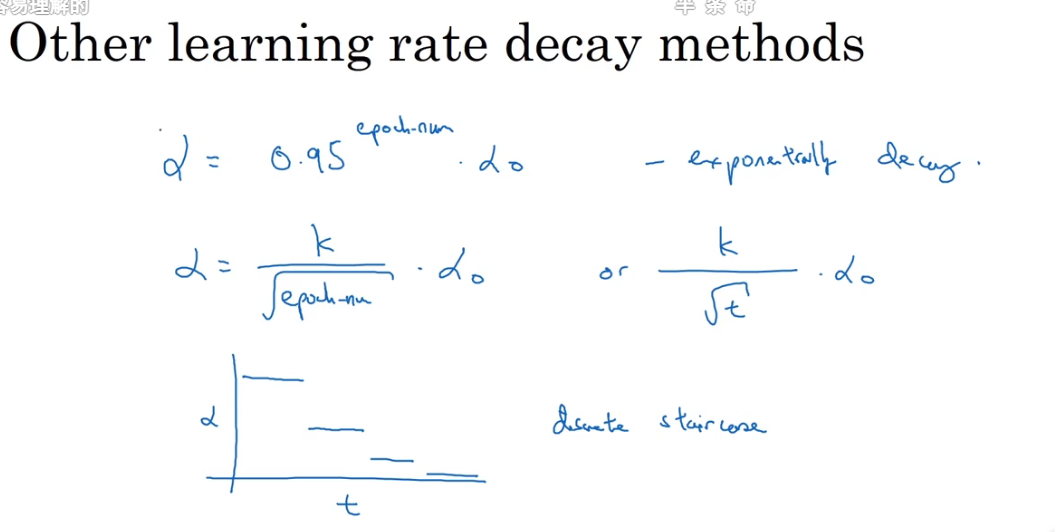 容易理解的 半条命
Other learning rate decay methods
α = 0.95^epoch-num · α₀ - exponentially decay.
α = k/√epoch-nu · α₀ or k/√t · α₀
α
discrete staircase
t